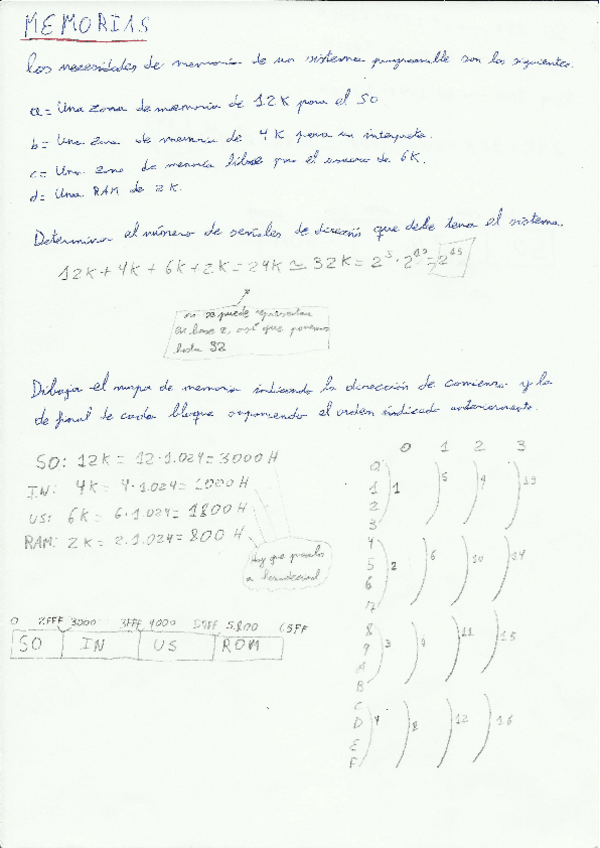 MEMORIAS
Las necesidades de memoria de un sistema programable son las siguientes.
a= Una zona de memoria de 12K para el SO
b= Una zona de memoria de 4K para un interprete.
c= Una zona de memoria libre para el usuario de 6K.
d= Una RAM de 2K.
Determinar el número de señales de dirección que debe tener el sistema.
12K + 4K + 6K + 2K = 24K ≃ 32K = 2³ · 2¹⁰ =
no se puede representar
en base 2, así que ponemos
hasta 32
Dibujar el mapa de memoria indicando la dirección de comienzo y la
de final de cada bloque suponiendo el orden indicado anteriormente.
SO: 12K = 12·1.024 = 3000 H
IN: 4K = 4·1.024 = 1000 H
US: 6K = 6·1.024 = 1800 H
RAM: 2K = 2·1.024 = 800 H
Hay que pasarlo
a hexadecimal
0 2FFF 3000 3FFF 4000 5800
SO IN US ROM
0 1 2 3
0
1 1 5 9 13
2
3
4
5 2 6 10 14
6
7
8
9 3 11 15
A
B
C
D 12 16
E
F